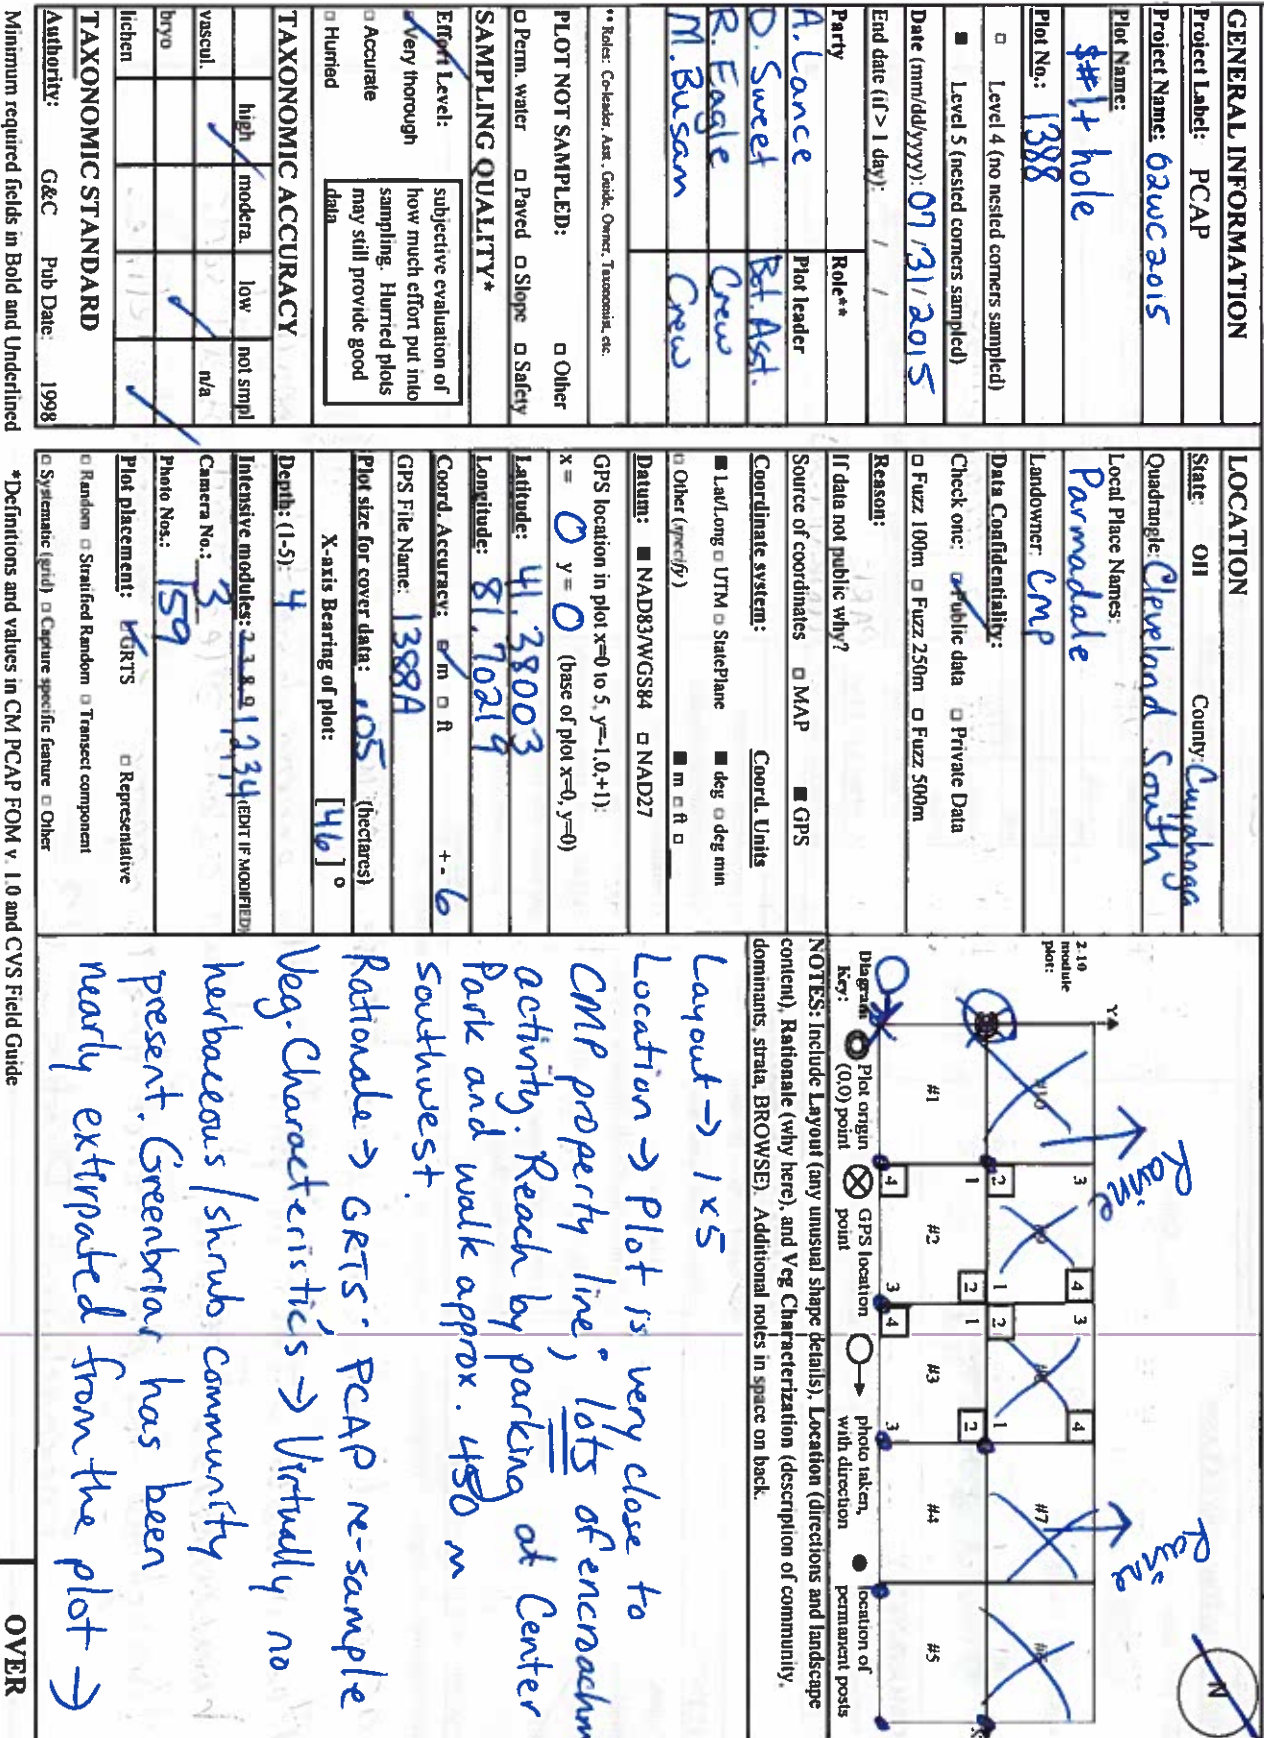 GENERAL INFORMATION
Project Label: PCAP
Project Name: 02WC2015
Plot Name:
$#1+ hole
Plot No.: 1388
□ Level 4 (no nested corners sampled)
■ Level 5 (nested corners sampled)
Date (mm/dd/yyyy): 07/31/2015
End date (if > 1 day): / /
Party Role**
A. Lance Plot leader
D. Sweet Bot. Asst.
R. Eagle Crew
M. Busam Crew
** Roles: Co-leader, Asst., Guide, Owner, Taxonomist, etc.
PLOT NOT SAMPLED: □ Other
□ Perm. water □ Paved □ Slope □ Safety
SAMPLING QUALITY*
Effort Level:
Very thorough
□ Accurate
□ Hurried
subjective evaluation of
how much effort put into
sampling. Hurried plots
may still provide good
data
TAXONOMIC ACCURACY
high modera. low not smpl
vascul. n/a
bryo
lichen
TAXONOMIC STANDARD
Authority: G&C Pub Date: 1998
Minimum required fields in Bold and Underlined
LOCATION
State: OH County: Cuyahoga
Quadrangle: Cleveland South
Local Place Names:
Parmadale
Landowner: CMP
Data Confidentiality:
Check one: Public data □ Private Data
□ Fuzz 100m □ Fuzz 250m □ Fuzz 500m
Reason:
If data not public why?
Source of coordinates □ MAP ■ GPS
Coordinate system: Coord. Units
■ Lat/Long □ UTM □ StatePlane ■ deg □ deg min
□ Other (specify) ■ m □ ft □
Datum: ■ NAD83/WGS84 □ NAD27
GPS location in plot x=0 to 5, y=-1,0,+1):
x = 0 y = 0 (base of plot x=0, y=0)
Latitude: 41.38003
Longitude: 81.70219
Coord. Accuracy: m □ ft +- 6
GPS File Name: 1388A
Plot size for cover data: .05 (hectares)
X-axis Bearing of plot: [46]°
Depth: (1-5): 4
Intensive modules: 2,3,8,9 1,2,3,4 (EDIT IF MODIFIED)
Camera No.: 3
Photo Nos.: 159
Plot placement: GRTS □ Representative
□ Random □ Stratified Random □ Transect component
□ Systematic (grid) □ Capture specific feature □ Other
*Definitions and values in CM PCAP FOM v. 1.0 and CVS Field Guide
2-10
module
plot:
Y
N
Ravine
Ravine
#10 #9 #8 #7 #6
3 4 3 4
2 1 2 1
1 2 1 2
#1 #2 #3 #4 #5
4 3 4 3
Diagram
Key:
Plot origin
(0,0) point
GPS location
point
photo taken,
with direction
location of
permanent posts
NOTES: Include Layout (any unusual shape details), Location (directions and landscape
content), Rationale (why here), and Veg Characterization (description of community,
dominants, strata, BROWSE). Additional notes in space on back.
Layout → 1x5
Location → Plot is very close to
CMP property line; lots of encroachm
activity. Reach by parking at Center
Park and walk approx. 450 m
southwest.
Rationale → GRTS. PCAP re-sample
Veg. Characteristics → Virtually no
herbaceous/shrub community
present. Greenbriar has been
nearly extirpated from the plot →
OVER